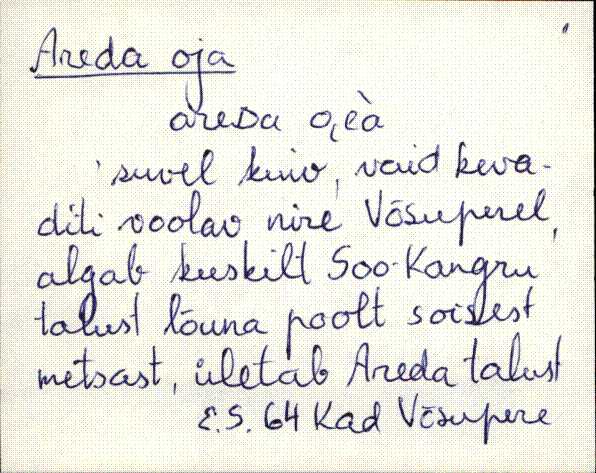 Areda oja
areDa o̭èà
suvel kuiv, vaid keva-
diti voolav nire Võsuperel,
algab kuskilt Soo-Kangru
talust lõuna poolt soisest
metsast, ületab Areda talust
E.S. 64 Kad Võsupere